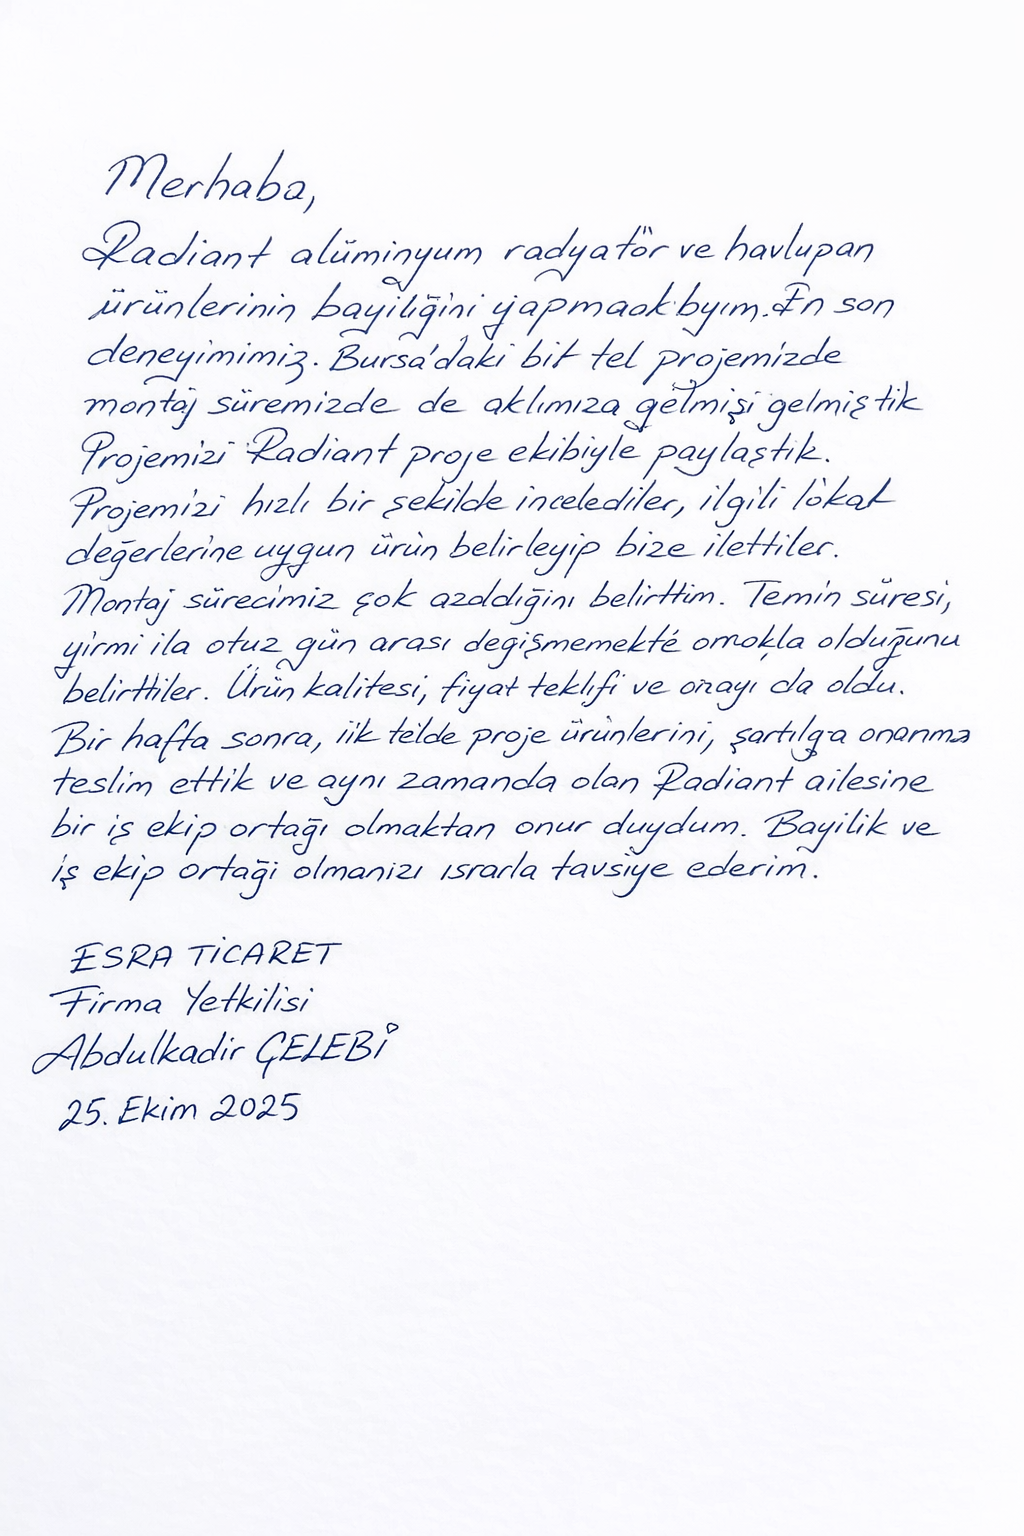 Merhaba,
Radiant alüminyum radyatör ve havlupan
ürünlerinin bayiliğini yapmaokbyım. En son
deneyimimiz. Bursa'daki bit tel projemizde
montaj süremizde de aklımıza gelmişi gelmiştik
Projemizi Radiant proje ekibiyle paylaştık.
Projemizi hızlı bir şekilde incelediler, ilgili lokal
değerlerine uygun ürün belirleyip bize ilettiler.
Montaj sürecimiz çok azoldığını belirttim. Temin süresi,
yirmi ila otuz gün arası değişmemekte omokla olduğunu
belirttiler. Ürün kalitesi, fiyat teklifi ve onayı da oldu.
Bir hafta sonra, iik telde proje ürünlerini, şartılga onanma
teslim ettik ve aynı zamanda olan Radiant ailesine
bir iş ekip ortağı olmaktan onur duydum. Bayilik ve
iş ekip ortaği olmanızı ısrarla tavsiye ederim.
ESRA TİCARET
Firma Yetkilisi
Abdulkadir ÇELEBİ
25. Ekim 2025